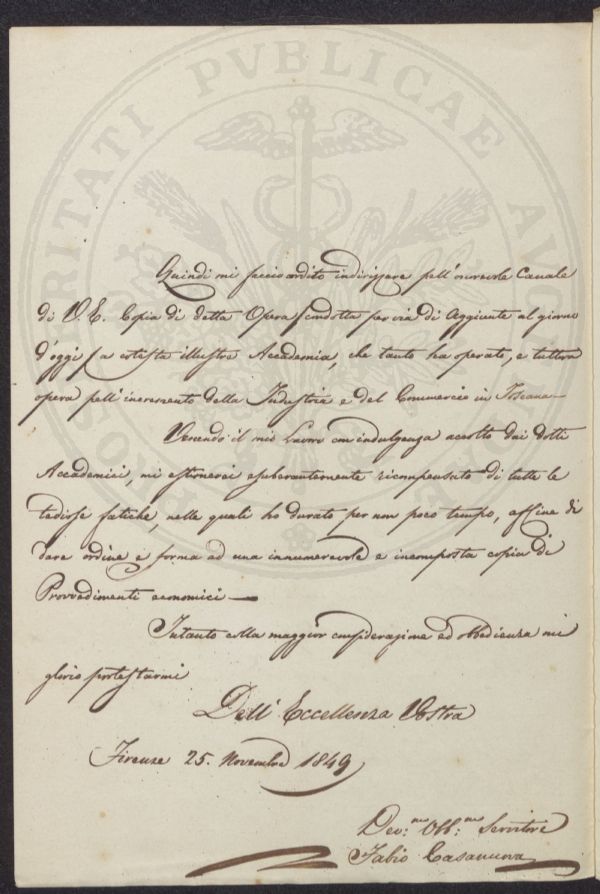 PROSPERITATI PVBLICAE AVGENDAE
Quindi mi faccio ardito indirizzare pell'onorevole Canale
di V. E. Copia di detta Opera (condotta per via di Aggiunte al giorno
d'oggi) a cotesta illustre Accademia, che tanto ha operato, e tuttora
opera pell'incremento della Industria e del Commercio in Toscana—
Venendo il mio Lavoro con indulgenza accolto dai dotti
Accademici, mi estimerei esuberantemente ricompensato di tutte le
tediose fatiche, nelle quali ho durato per non poco tempo, affine di
dare ordine e forma ad una innumerevole e incomposta copia di
Provvedimenti economici —
Intanto colla maggior considerazione ed obbedienza mi
glorio protestarmi
Dell'Eccellenza Vostra
Firenze 25. Novembre 1849
Dev:mo Obb:mo Servitore
Fabio Casanuova